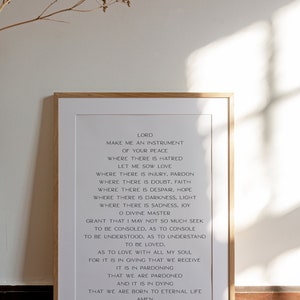 LORD
MAKE ME AN INSTRUMENT
OF YOUR PEACE
WHERE THERE IS HATRED
LET ME SOW LOVE
WHERE THERE IS INJURY, PARDON
WHERE THERE IS DOUBT, FAITH
WHERE THERE IS DESPAIR, HOPE
WHERE THERE IS DARKNESS, LIGHT
WHERE THERE IS SADNESS, JOY
O DIVINE MASTER
GRANT THAT I MAY NOT SO MUCH SEEK
TO BE CONSOLED, AS TO CONSOLE
TO BE UNDERSTOOD, AS TO UNDERSTAND
TO BE LOVED,
AS TO LOVE WITH ALL MY SOUL
FOR IT IS IN GIVING THAT WE RECEIVE
IT IS IN PARDONING
THAT WE ARE PARDONED
AND IT IS IN DYING
THAT WE ARE BORN TO ETERNAL LIFE
AMEN